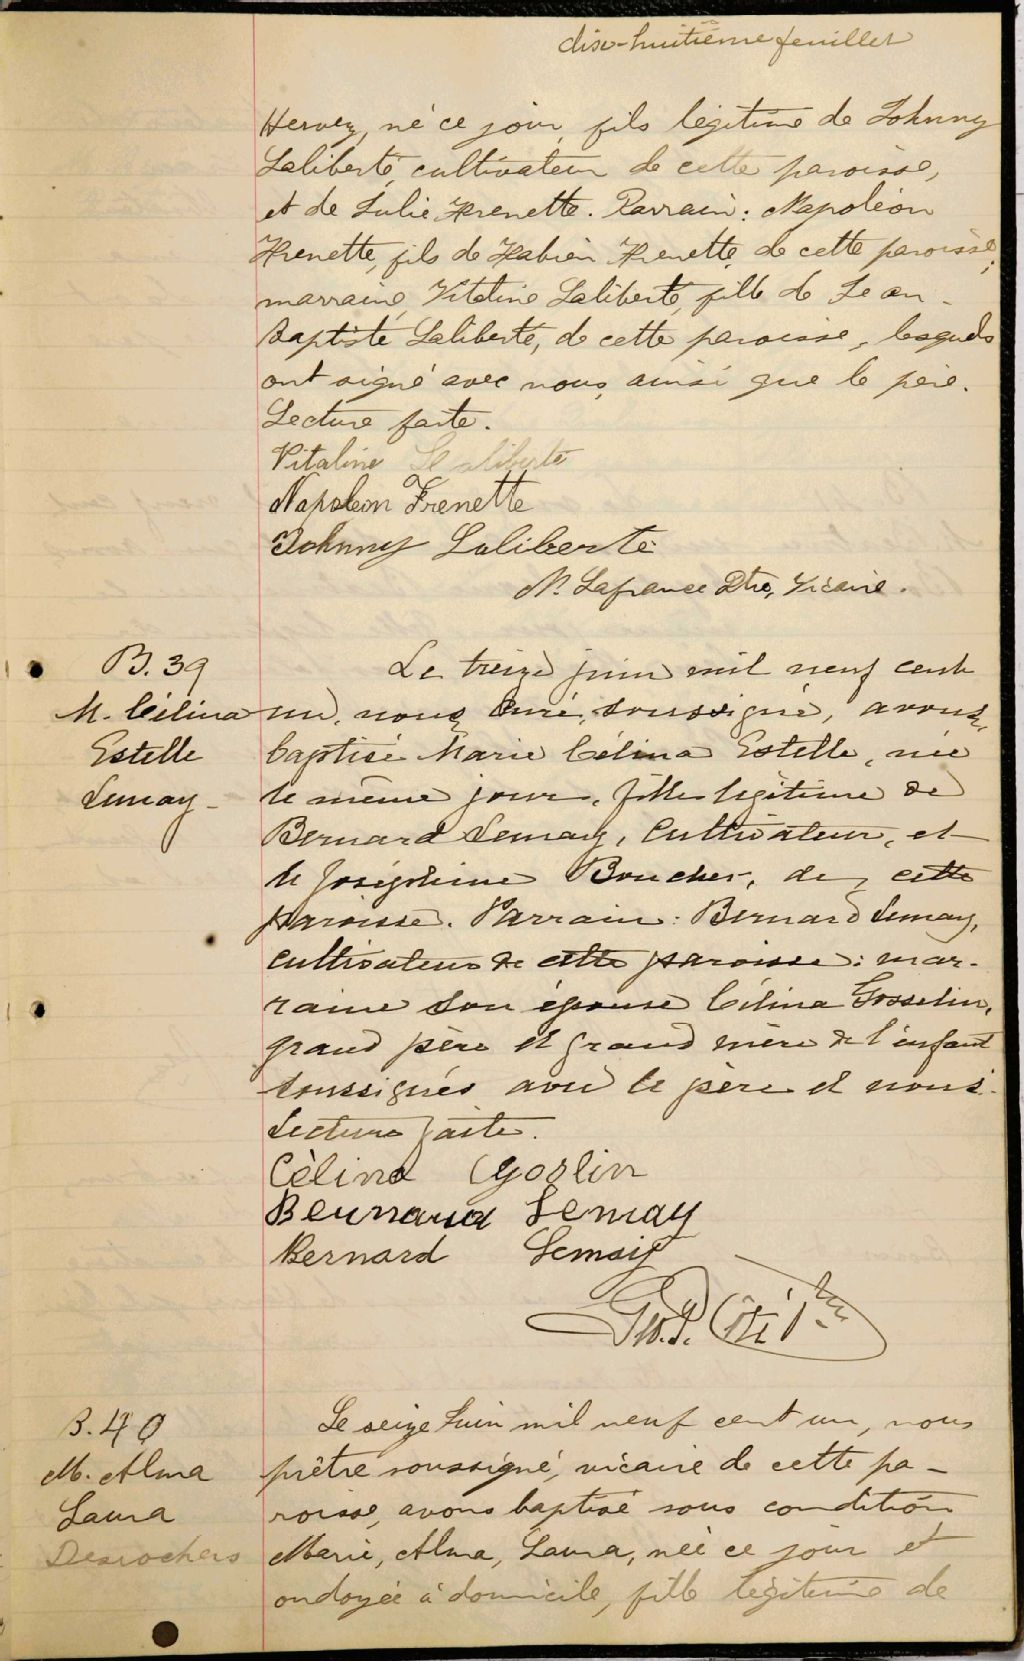 dix-huitième feuillet
Hervey, né ce jour, fils légitime de Johnny
Laliberté, cultivateur de cette paroisse,
et de Julie Frenette. Parrain: Napoléon
Frenette, fils de Fabien Frenette, de cette paroisse;
marraine, Vitaline Laliberté, fille de Jean-
Baptiste Laliberté, de cette paroisse, lesquels
ont signé avec nous, ainsi que le père.
Lecture faite.
Vitaline Laliberté
Napoleon Frenette
Johnny Laliberté
N. Lafrance Ptre, Vicaire.
B. 39
M. Célina
Estelle
Lemay
Le treize juin mil neuf cent
un, nous Curé, soussigné, avons
baptisé Marie Célina Estelle, née
le même jour, fille légitime de
Bernard Lemay, Cultivateur, et
de Joséphine Boucher, de cette
paroisse. Parrain: Bernard Lemay,
cultivateur de cette paroisse: mar-
raine son épouse Célina Gosselin,
grand père et grand mère de l'enfant
soussignés avec le père et nous.
Lecture faite.
Célina Goslin
Bernard Lemay
Bernard Lemay
Geo. P. Côté Ptre
B. 40
M. Alma
Laura
Desrochers
Le seize Juin mil neuf cent un, nous
prêtre soussigné, vicaire de cette pa-
roisse, avons baptisé sous condition
Marie, Alma, Laura, née ce jour et
ondoyée à domicile, fille légitime de